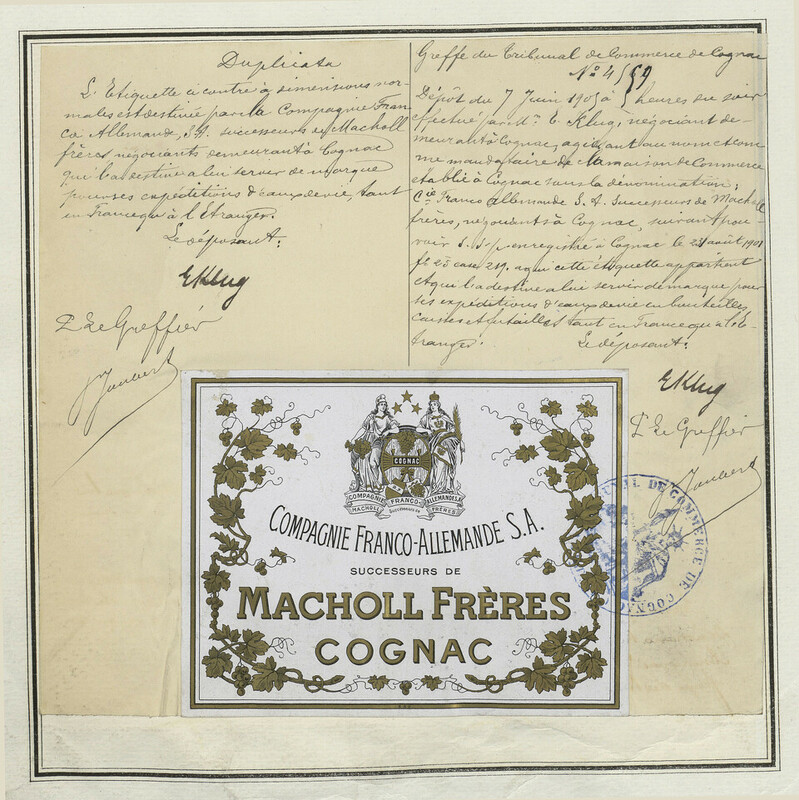 Duplicata
L'Etiquette ci contre à dimensions nor-
males est destinée par la Compagnie Fran-
co Allemande, S.A. successeurs de Macholl
frères négociants demeurant à Cognac
qui l'a destine a lui servir de marque
pour ses expéditions d'eaux de vie, tant
en France qu'à l'Etranger.
Le déposant:
EKlug
P. Le Greffier
Joubert
Greffe du Tribunal de Commerce de Cognac
Nº 4559
Dépôt du 7 Juin 1905 à 5 heures du soir
effectué par Mr. E. Klug, négociant de-
meurant à Cognac, agissant au nom et com-
me mandataire de la maison de Commerce
établie à Cognac sous la dénomination;
Cie Franco Allemande S. A. Successeurs de Macholl
frères, négociants à Cognac, suivant pou-
voir S. S. p. enregistré à Cognac le 23 août 1901
fº 25 case 219, a qui cette étiquette appartient
et qui l'a destine a lui servir de marque pour
ses expéditions d'eaux de vie en bouteilles,
caisses et futailles tant en France qu'a l'E-
tranger.
Le déposant:
EKlug
P. Le Greffier
Joubert
COGNAC
COMPAGNIE FRANCO-ALLEMANDE S.A.
MACHOLL SUCCESSEURS DE FRÈRES
COMPAGNIE FRANCO-ALLEMANDE S.A.
SUCCESSEURS DE
MACHOLL FRÈRES
COGNAC
TRIBUNAL DE COMMERCE DE COGNAC